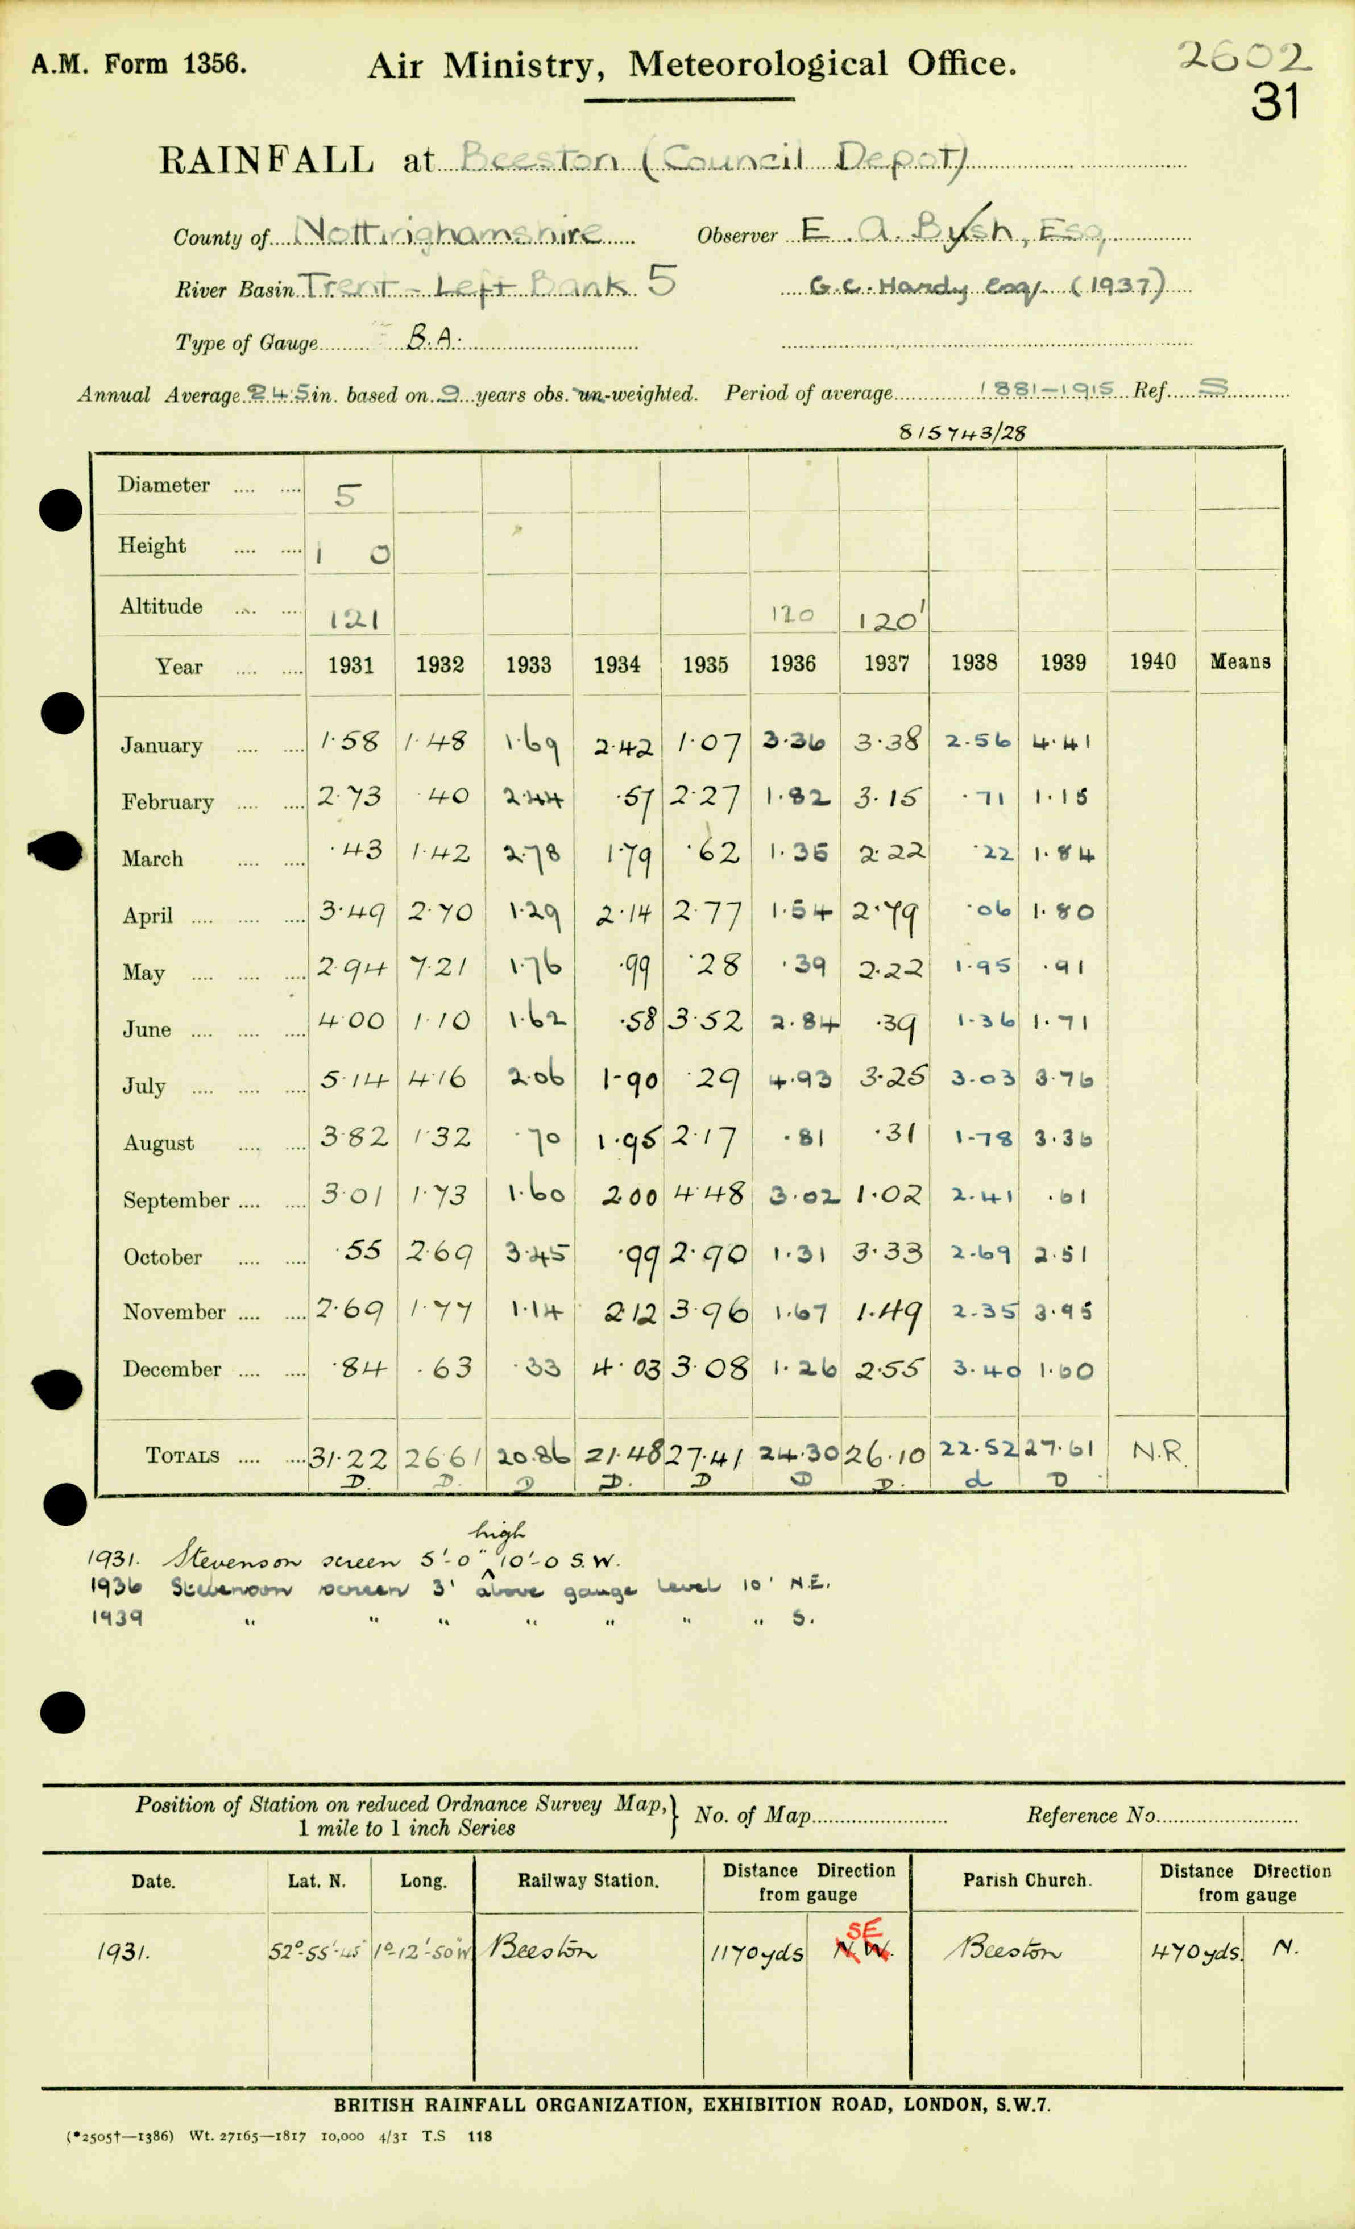 A.M. Form 1356. Air Ministry, Meteorological Office. 2602
31
RAINFALL at Beeston (Council Depot)
County of Nottinghamshire Observer E. A. Bush, Esq,
River Basin Trent - Left Bank 5 G.C. Hardy Esq. (1937)
Type of Gauge B.A.
Annual Average 24.5 in. based on 9 years obs. un-weighted. Period of average 1881-1915 Ref. S
815743/28
Diameter 5
Height 1 0
Altitude 121 120 120'
Year 1931 1932 1933 1934 1935 1936 1937 1938 1939 1940 Means
January 1.58 1.48 1.69 2.42 1.07 3.36 3.38 2.56 4.41
February 2.73 .40 2.44 .57 2.27 1.82 3.15 .71 1.15
March .43 1.42 2.78 1.79 .62 1.35 2.22 .22 1.84
April 3.49 2.70 1.29 2.14 2.77 1.54 2.79 .06 1.80
May 2.94 7.21 1.76 .99 .28 .39 2.22 1.95 .91
June 4.00 1.10 1.62 .58 3.52 2.84 .39 1.36 1.71
July 5.14 4.16 2.06 1.90 .29 4.93 3.25 3.03 3.76
August 3.82 1.32 .70 1.95 2.17 .81 .31 1.78 3.36
September 3.01 1.73 1.60 2.00 4.48 3.02 1.02 2.41 .61
October .55 2.69 3.45 .99 2.90 1.31 3.33 2.69 2.51
November 2.69 1.77 1.14 2.12 3.96 1.67 1.49 2.35 3.95
December .84 .63 .33 4.03 3.08 1.26 2.55 3.40 1.60
TOTALS 31.22 26.61 20.86 21.48 27.41 24.30 26.10 22.52 27.61 N.R.
D. D. D D. D D D. d D
high
1931. Stevenson screen 5'-0" ^ 10'-0 S.W.
1936 Stevenson screen 3' above gauge level 10' N.E.
1939 " " " " " " " S.
Position of Station on reduced Ordnance Survey Map,} No. of Map Reference No.
1 mile to 1 inch Series
Date. Lat. N. Long. Railway Station. Distance Direction from gauge Parish Church. Distance Direction from gauge
SE
1931. 52°-55'-45" 1°-12'-50"W Beeston 1170yds N.W. Beeston 470yds. N.
BRITISH RAINFALL ORGANIZATION, EXHIBITION ROAD, LONDON, S.W.7.
(*2505†—1386) Wt. 27165—1817 10,000 4/31 T.S 118